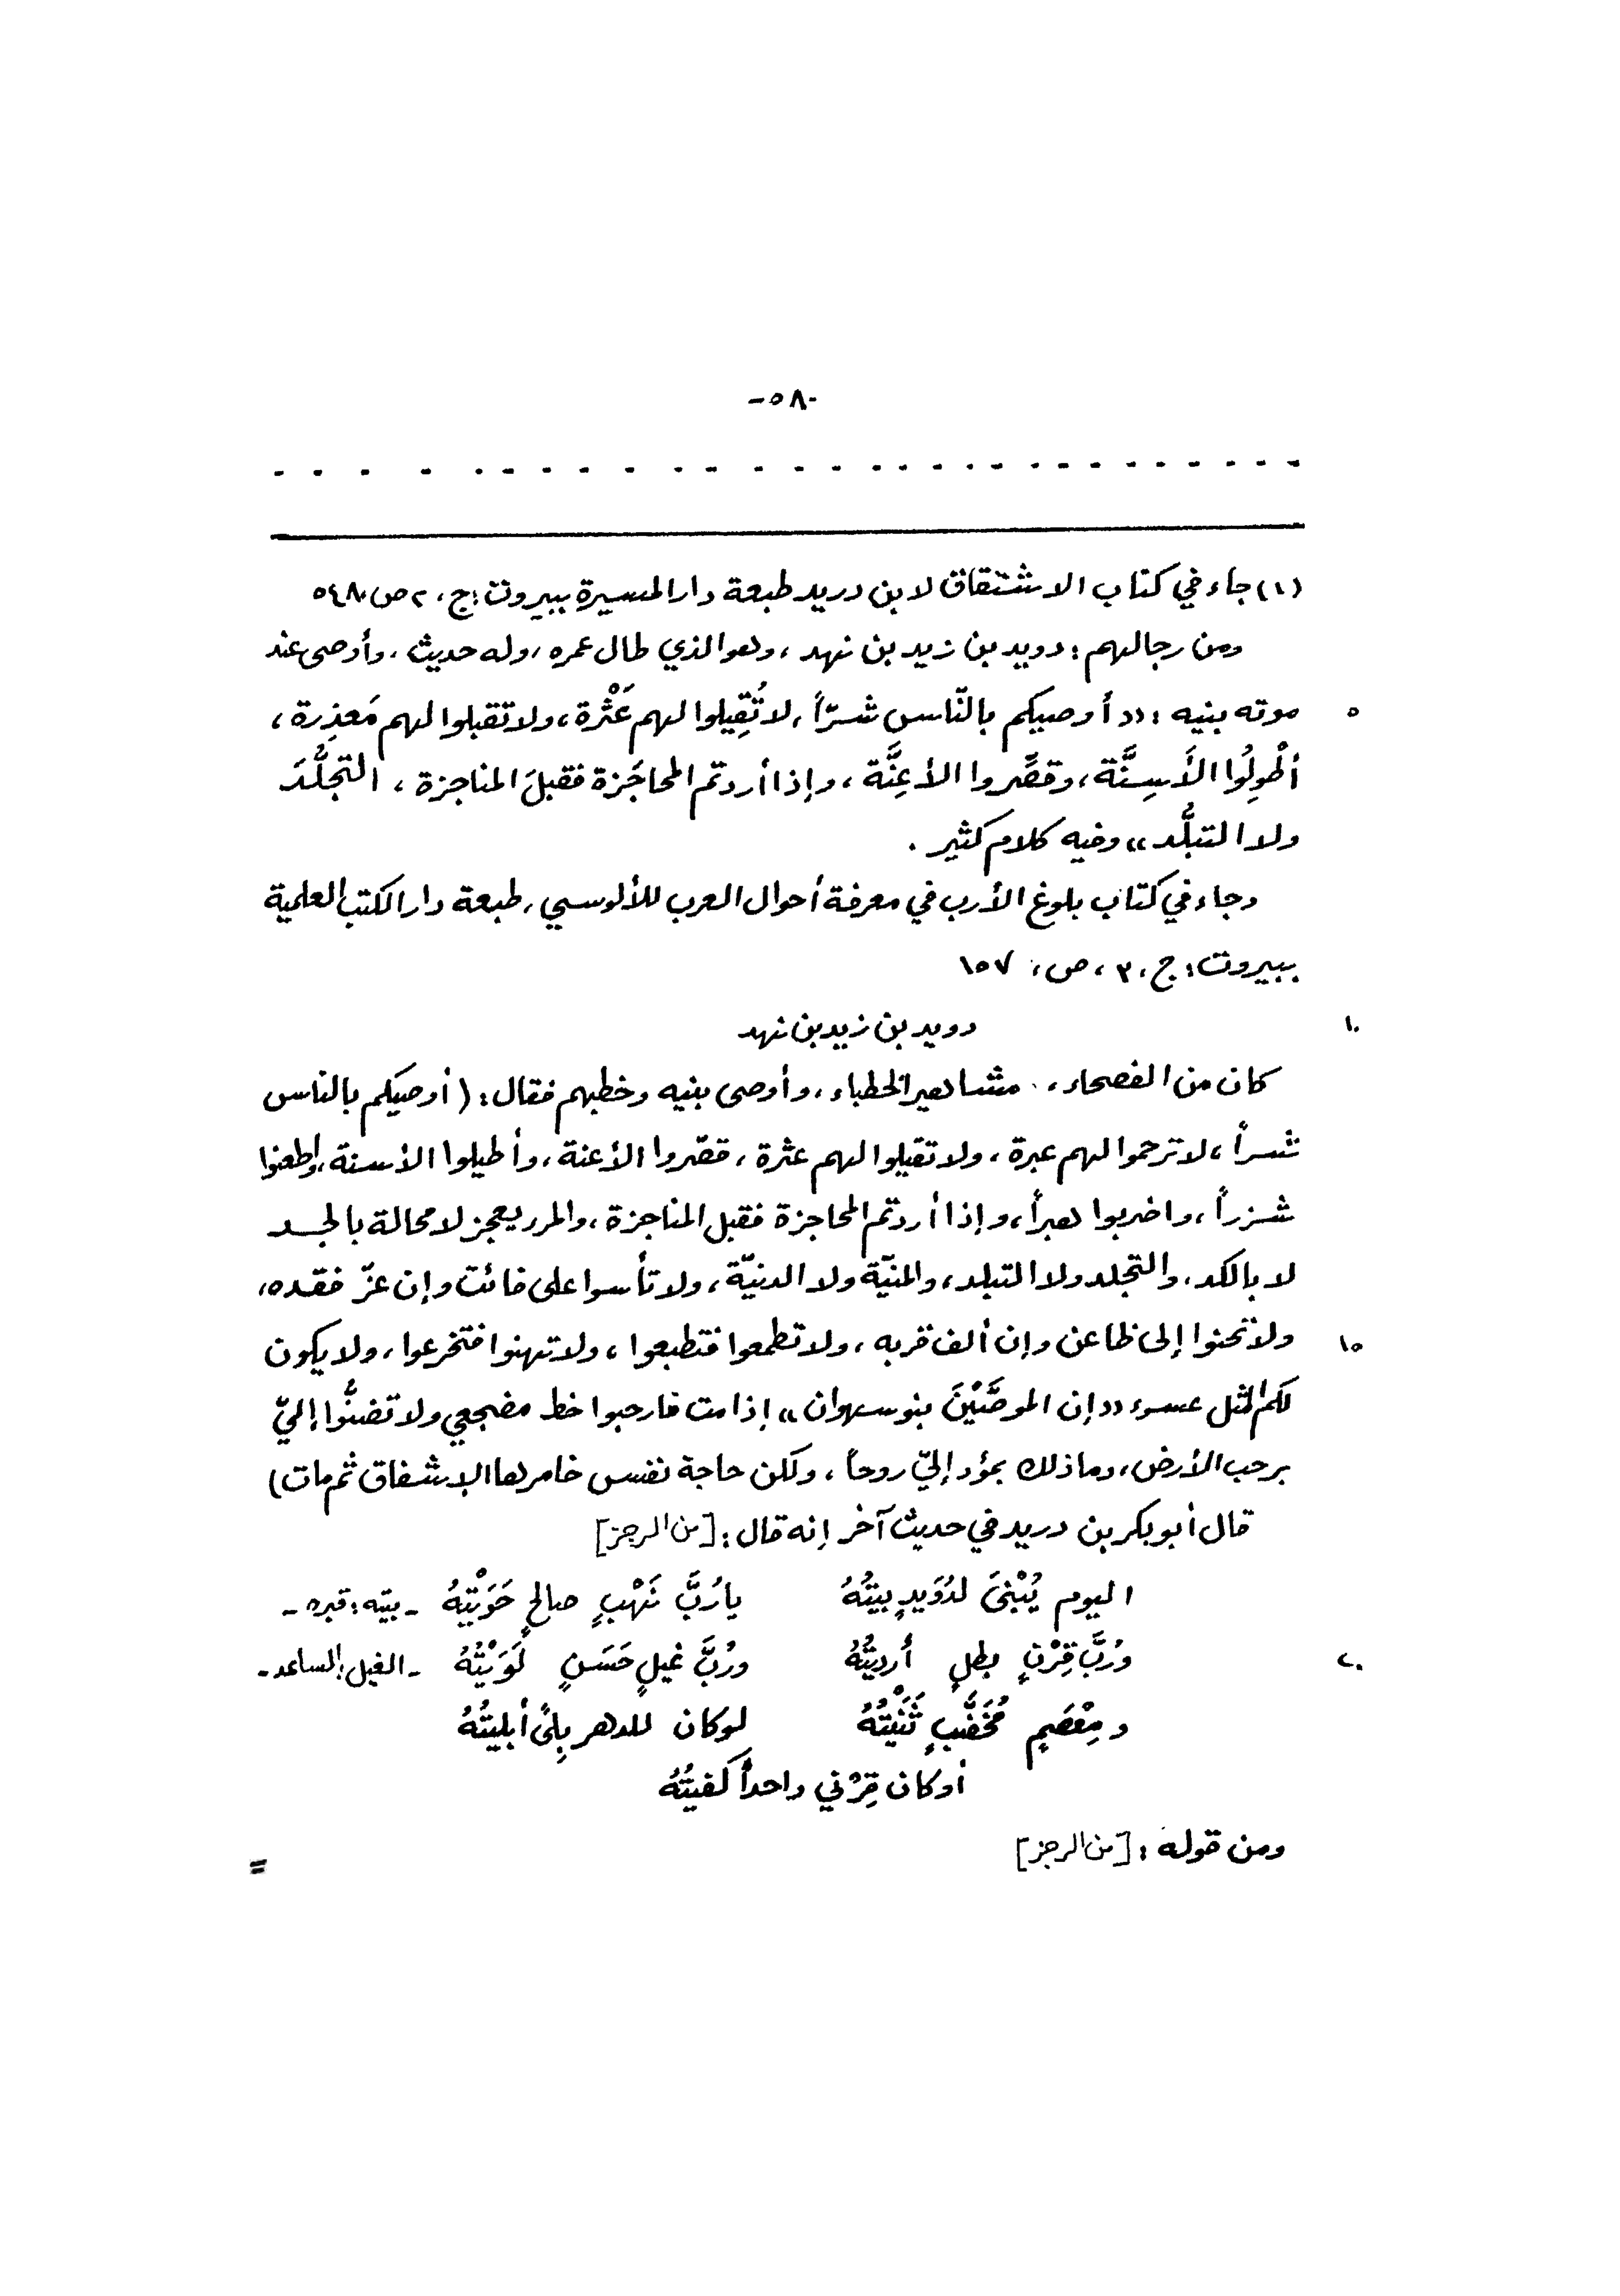 -٥٨-
(١) جاء في كتاب الاشتقاق لابن دريد طبعة دار المسيرة ببيروت : ج، ٢ ص، ٥٤٨
ومن رجالهم : دويد بن زيد بن نهد ، وهو الذي طال عمره ، وله حديث ، وأوصى عند
٥ موته بنيه : «أوصيكم بالنّاس شرّاً ، لا تُقِيلوا لهم عَثْرة ، ولا تقبلوا لهم مَعذِرة ،
أطْولِوُا الأَسِنَّة ، وقصِّروا الأعِنَّة ، وإذا أردتم المحاجَزة فقبلَ المناجزة ، التجلُّدَ
ولا التبلُّد» وفيه كلام كثير .
وجاء في كتاب بلوغ الأرب في معرفة أحوال العرب للألوسي ، طبعة دار الكتب العلمية
ببيروت : ج ، ٣ ، ص ، ١٥٧
١٠ دويد بن زيد بن نهد
كان من الفصحاء ، مشاهير الخطباء ، وأوصى بنيه وخطبهم فقال : (أوصيكم بالناس
شراً ، لا ترحموا لهم عبرة ، ولا تقيلوا لهم عثرة ، قصّروا الأعنة ، وأطيلوا الأسنة ، واطعنوا
شزراً ، واضربوا هبراً ، وإذا أردتم المحاجزة فقبل المناجزة ، والمرء يعجز لا محالة بالجد
لا بالكد ، والتجلد ولا التبلد ، والمنيّة ولا الدنيّة ، ولا تأسوا على فائت وإن عزّ فقده ،
١٥ ولا تحنوا إلى ظاعن وإن ألف قربه ، ولا تطمعوا فتطبعوا ، ولا تهنوا فتخرعوا ، ولا يكون
لكم المثل عسوء «إن الموصَّيْنَ بنو سهوان» إذا مت فارحبوا خط مضجعي ولا تضنُّوا إليّ
برحب الأرض ، وما ذلك بمؤد إليّ روحاً ، ولكن حاجة نفس خامرها الإشفاق ثم مات)
قال أبو بكر بن دريد في حديث آخر إنه قال : [من الرجز]
اليوم يُبْنىَ لدُوَيدٍ بيتُهُ يا رُبَّ نَهْبٍ صالحٍ حَوَيْتُهُ - بيته : قبره -
٢٠ ورُبَّ قِرْنٍ بطلٍ أرديتُهُ ورُبَّ غيلٍ حَسَنٍ لَوَيْتُهُ - الغيل : الساعد -
ومِعْصَمٍ مُخَضَّبٍ ثَنَيْتُهُ لو كان للدهر بِلىً أبليتُهُ
أو كان قِرْني واحداً كفيتُهُ
ومن قوله : [من الرجز]
=